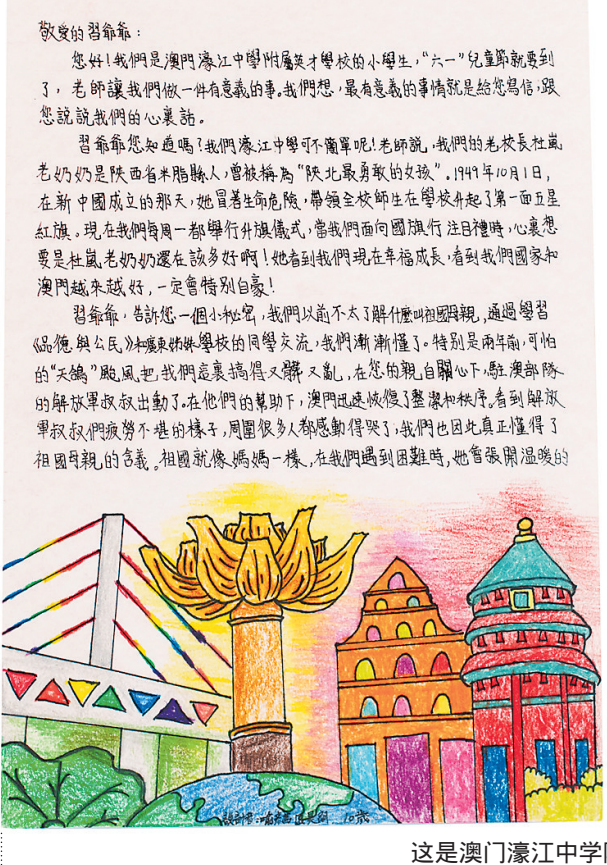 敬愛的習爺爺：
您好！我們是澳門濠江中學附屬英才學校的小學生，“六一”兒童節就要到
了，老師讓我們做一件有意義的事。我們想，最有意義的事情就是給您寫信，跟
您說說我們的心裏話。
習爺爺您知道嗎？我們濠江中學可不簡單呢！老師說，我們的老校長杜嵐
老奶奶是陝西省米脂縣人，曾被稱為“陝北最勇敢的女孩”。1949年10月1日，
在新中國成立的那天，她冒著生命危險，帶領全校師生在學校升起了第一面五星
紅旗。現在我們每周一都舉行升旗儀式，當我們面向國旗行注目禮時，心裏想
要是杜嵐老奶奶還在該多好啊！她看到我們現在幸福成長，看到我們國家和
澳門越來越好，一定會特別自豪！
習爺爺，告訴您一個小秘密，我們以前不太了解什麼叫祖國母親，通過學習
《品德與公民》和廣東姊妹學校的同學交流，我們漸漸懂了。特別是兩年前，可怕
的“天鴿”颱風把我們這裏搞得又髒又亂，在您的親自關心下，駐澳部隊
的解放軍叔叔出動了。在他們的幫助下，澳門迅速恢復了整潔和秩序。看到解放
軍叔叔們疲勞不堪的樣子，周圍很多人都感動得哭了，我們也因此真正懂得了
祖國母親的含義。祖國就像媽媽一樣，在我們遇到困難時，她會張開溫暖的
設計者：10歲
这是澳门濠江中学